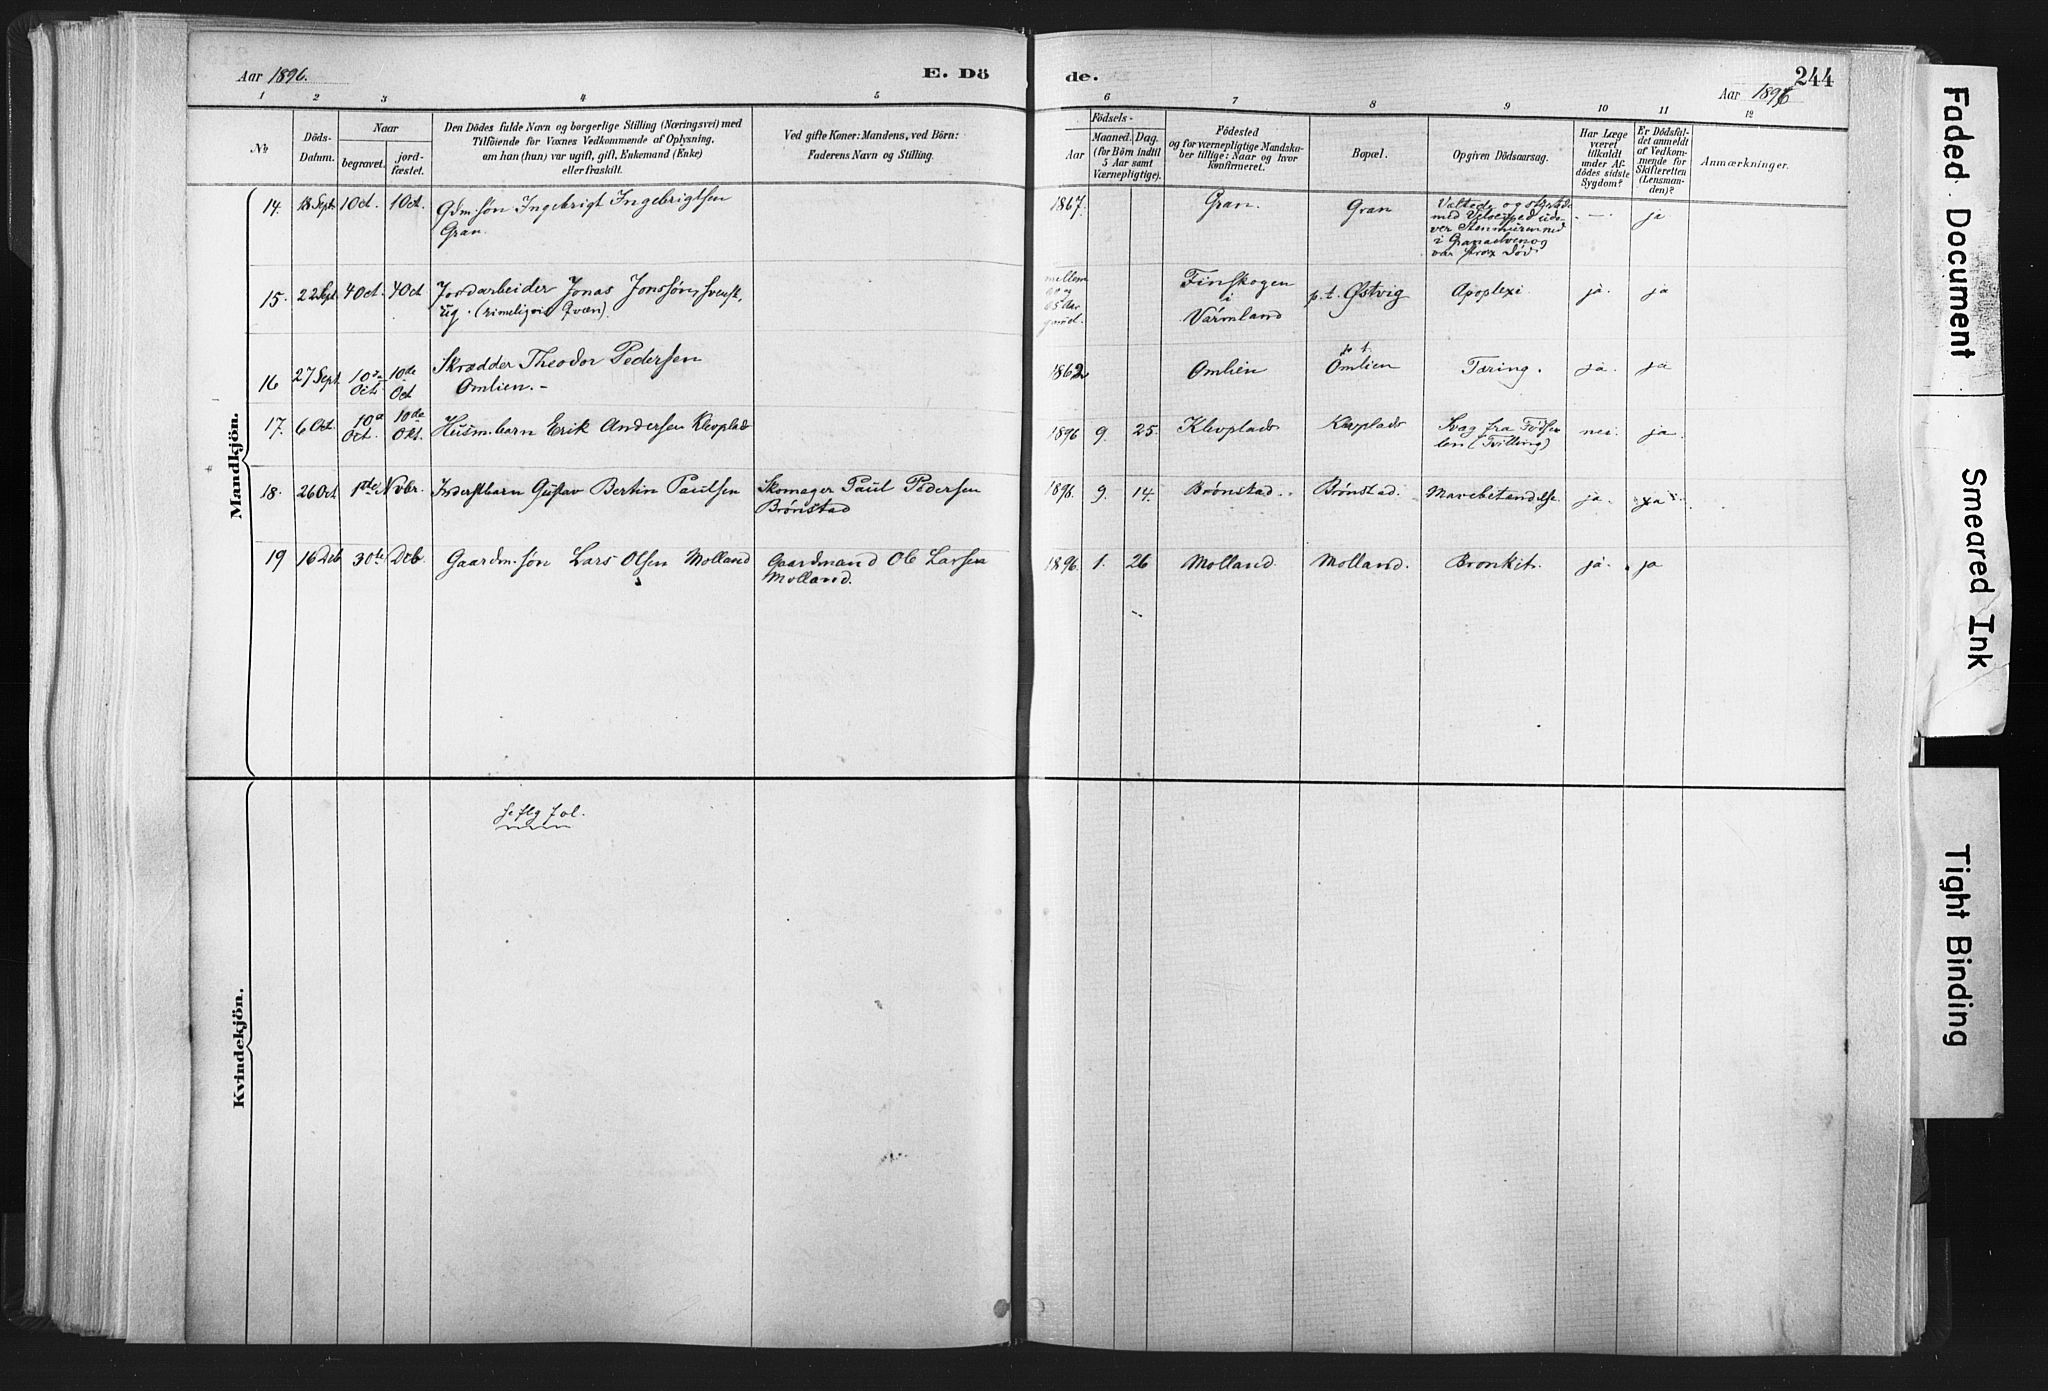 Aar 1896.
E. Dö
de.
244
Aar 1896
1 2 3 4 5 6 7 8 9 10 11 12
No
Döds-
Datum.
Naar
begravet.
jord-
fæstet.
Den Dödes fulde Navn og borgerlige Stilling (Næringsvei) med
Tilföiende for Voxnes Vedkommende af Oplysning,
om han (hun) var ugift, gift, Enkemand (Enke)
eller fraskilt.
Ved gifte Koner: Mandens, ved Börn:
Faderens Navn og Stilling.
Födsels-
Aar
Maaned. Dag.
(for Börn indtil
5 Aar samt
Værnepligtige).
Födested
og for værnepligtige Mandska-
ber tillige: Naar og hvor
konfirmeret.
Bopæl.
Opgiven Dödsaarsag.
Har Læge
været
tilkaldt
under Af-
dödes sidste
Sygdom?
Er Dödsfal-
det anmeldt
af Vedkom-
mende for
Skifteretten
(Lensman-
den)?
Anmærkninger.
Mandkjön.
14. 18 Sept. 1 Oct. 1 Oct. Gdm.søn Ingebrigt Ingebrigtsen
Gran.
1867. Gran. Gran
Væltede og styrtede
med Velociped ud o-
ver Stenmuren ned
i Granaelven og
var strax død
— ja
15. 22 Sept. 4 Oct. 4 Oct Jordarbeider Jonas Jonssøn, svensk,
ug. (rimeligvis Qvæn).
mellem
60 og
65 Aar
gmel.
Finskogen
i
Värmland
p. t. Østvig Apoplexi ja. ja
16 27 Sept. 10de
Oct. 10de
Oct
Skrædder Theodor Pedersen
Omlien. -
1862 Omlien p. t.
Omlien Tæring. ja. ja
17. 6 Oct. 10de
Oct. 10de
Okt. Husm.barn Erik Andersen Klevplads
1896 9. 25. Klevplads Klevplads Svag fra Fødse
len (Tvilling) nei. ja.
18. 26 Oct. 1ste Nvbr. Inderstbarn Gustav Bertin Paulsen
Skomager Paul Pedersen
Brønstad
1896. 9. 14. Brønstad. Brønstad. Mavebetændelse. ja. ja
19 16 Deb. 30te Deb. Gaardm.søn Lars Olsen Molland
Gaardmand Ole Larsen
Molland.
1896. 1. 26 Molland. Molland. Bronkit. ja. ja
Kvindekjön.
se flg fol.
Faded Document
Smeared Ink
Tight Binding